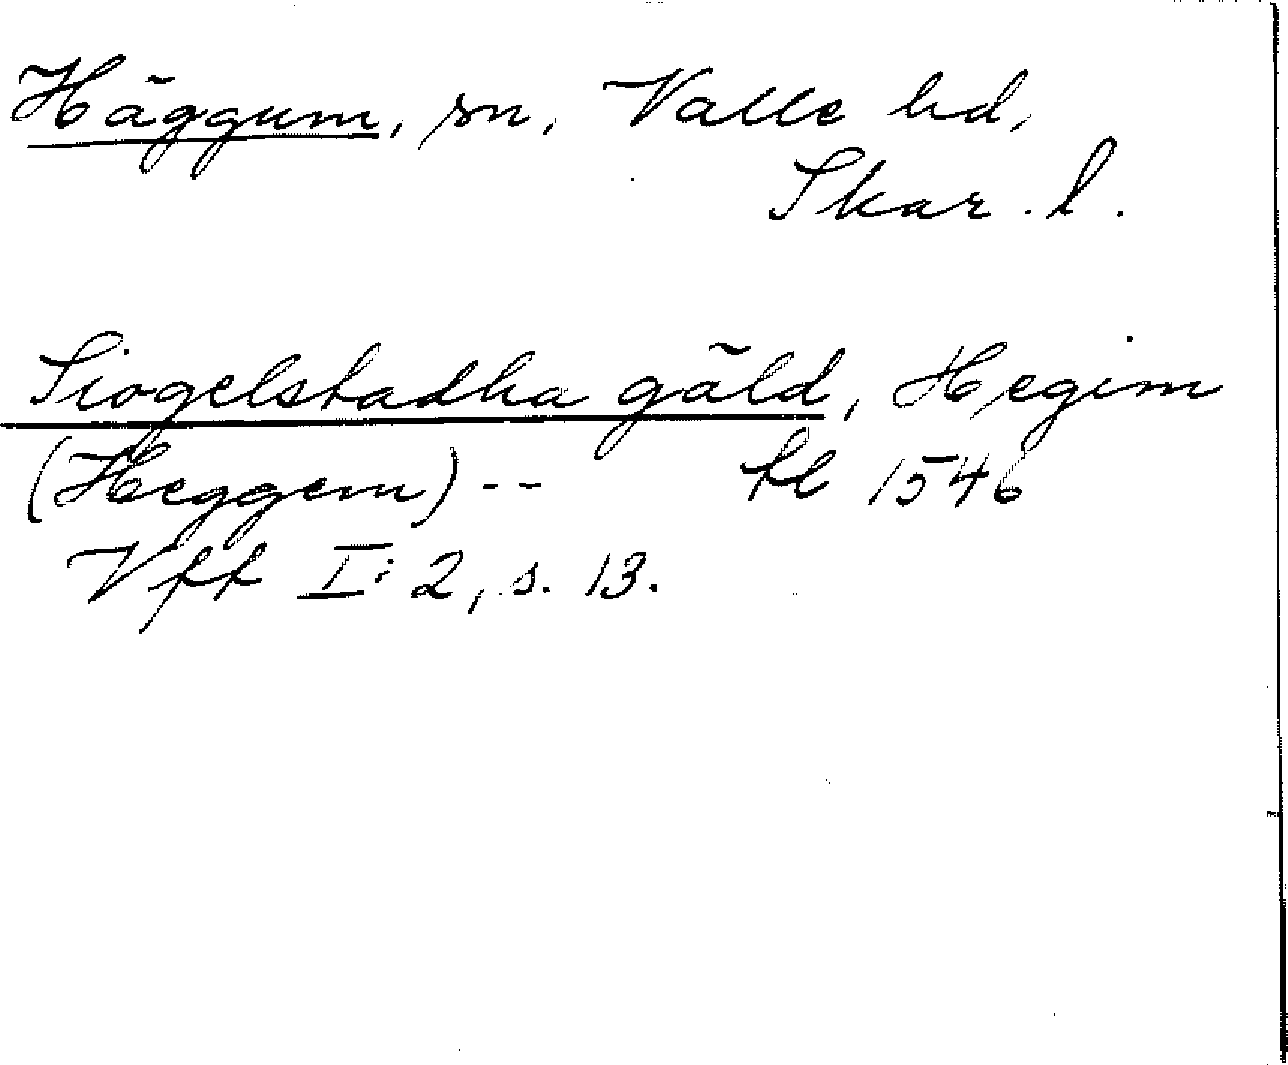 Häggum, sn, Valle hd,
Skar. l.
Siogelstadha gäld, Hegim
(Heggem) -- fl 1546
Vff I: 2, s. 13.